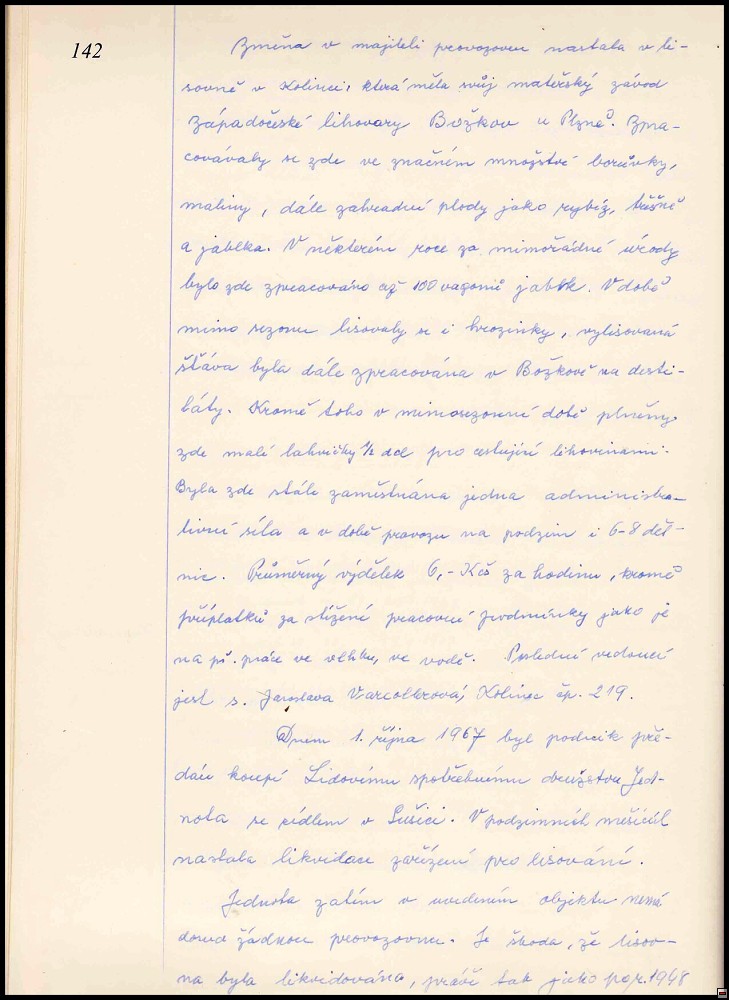 142
Změna v majiteli provozoven nastala v li-
sovně v Kolinci, která měla svůj mateřský závod
Západočeské lihovary Božkov u Plzně. Zpra-
covávaly se zde ve značném množství borůvky,
maliny, dále zahradní plody jako rybíz, třešně
a jablka. V některém roce za mimořádné úrody
bylo zde zpracováno až 100 vagonů jablk. V době
mimo sezonu lisovaly se i hrozinky, vylisovaná
šťáva byla dále zpracována v Božkově na desti-
láty. Kromě toho v mimosezonní době plněny
zde malé lahvičky ½ dcl pro cestující lihovinami.
Byla zde stále zaměstnána jedna administra-
tivní síla a v době provozu na podzim i 6-8 děl-
nic. Průměrný výdělek 6,- Kčs za hodinu, kromě
příplatků za stížené pracovní podmínky jako je
na př. práce ve vlhku, ve vodě. Poslední vedoucí
jest s. Jaroslava Kolinec čp. 219.
Dnem 1. října 1967 byl podnik pře-
dán koupí Lidovému spotřebnímu družstvu Jed-
nota se sídlem v Sušici. V podzimních měsících
nastala likvidace zařízení pro lisování.
Jednota zatím v uvedeném objektu nemá
dosud žádnou provozovnu. Je škoda, že lisov-
na byla likvidována, právě tak jako po r. 1948